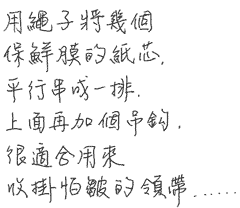 用繩子將幾個
保鮮膜的紙芯,
平行串成一排.
上面再加個吊鈎,
很適合用來
收掛怕皺的領帶......